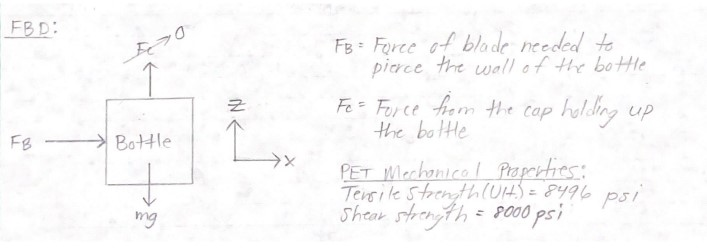 FBD:
Fc 0
FB Bottle
mg
Z
X
FB = Force of blade needed to
pierce the wall of the bottle
Fc = Force from the cap holding up
the bottle
PET Mechanical Properties:
Tensile Strength (Ult.) = 8496 psi
Shear strength = 8000 psi